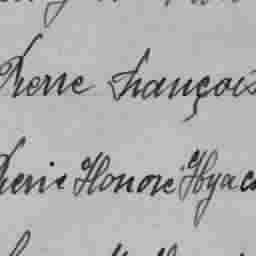 Pierre François
Pierre Honoré Hyac